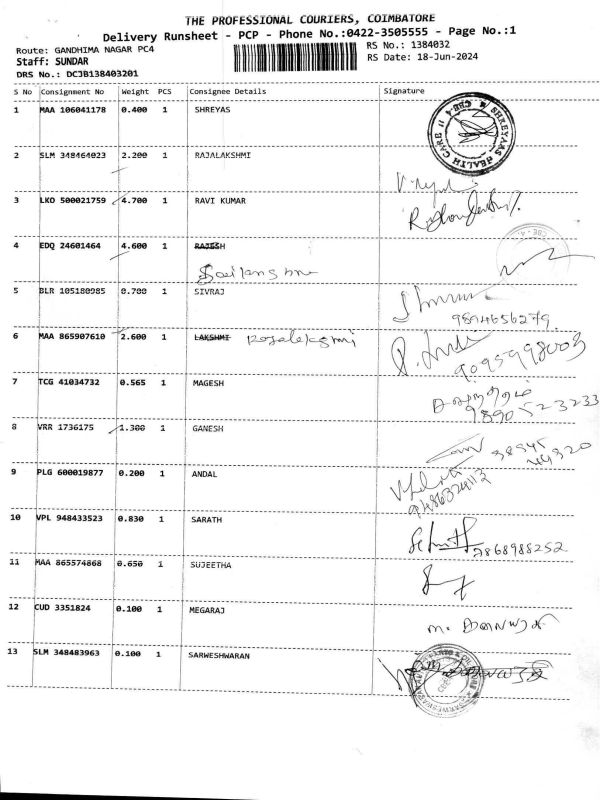 THE PROFESSIONAL COURIERS, COIMBATORE
Delivery Runsheet - PCP - Phone No.:0422-3505555 - Page No.:1
Route: GANDHIMA NAGAR PC4
RS No.: 1384032
Staff: SUNDAR
RS Date: 18-Jun-2024
DRS No.: DCJB138403201
S No Consignment No Weight PCS Consignee Details Signature
1 MAA 106041178 0.400 1 SHREYAS
SHREYAAS HEALTH CARE
2 SLM 348464023 2.200 1 RAJALAKSHMI
3 LKO 500021759 4.700 1 RAVI KUMAR
4 EDQ 24601464 4.600 1 RAJESH
5 BLR 105180985 0.700 1 SIVRAJ
9874656279
6 MAA 865907610 2.600 1 LAKSHMI
9095998003
7 TCG 41034732 0.565 1 MAGESH
9890523233
8 VRR 1736175 1.300 1 GANESH
9 PLG 600019877 0.200 1 ANDAL
10 VPL 948433523 0.830 1 SARATH
7868988252
11 MAA 865574868 0.650 1 SUJEETHA
12 CUD 3351824 0.100 1 MEGARAJ
13 SLM 348483963 0.100 1 SARWESHWARAN